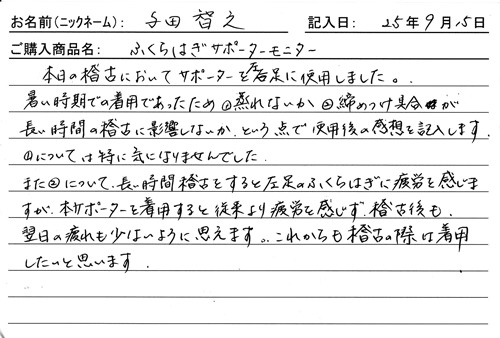 お名前(ニックネーム): 与田 智之 記入日: 25年9月15日
ご購入商品名: ふくらはぎサポーターモニター
本日の稽古においてサポーターを左足に使用しました。
暑い時期での着用であったため①蒸れないか②締めつけ具合が
長い時間の稽古に影響しないか、という点で使用後の感想を記入します
①については特に気になりませんでした.
また②について、長い時間稽古をすると左足のふくらはぎに疲労を感じま
すが、本サポーターを着用すると従来より疲労を感じず、稽古後も、
翌日の疲れも少ないように思えます。これからも稽古の際は着用
したいと思います.